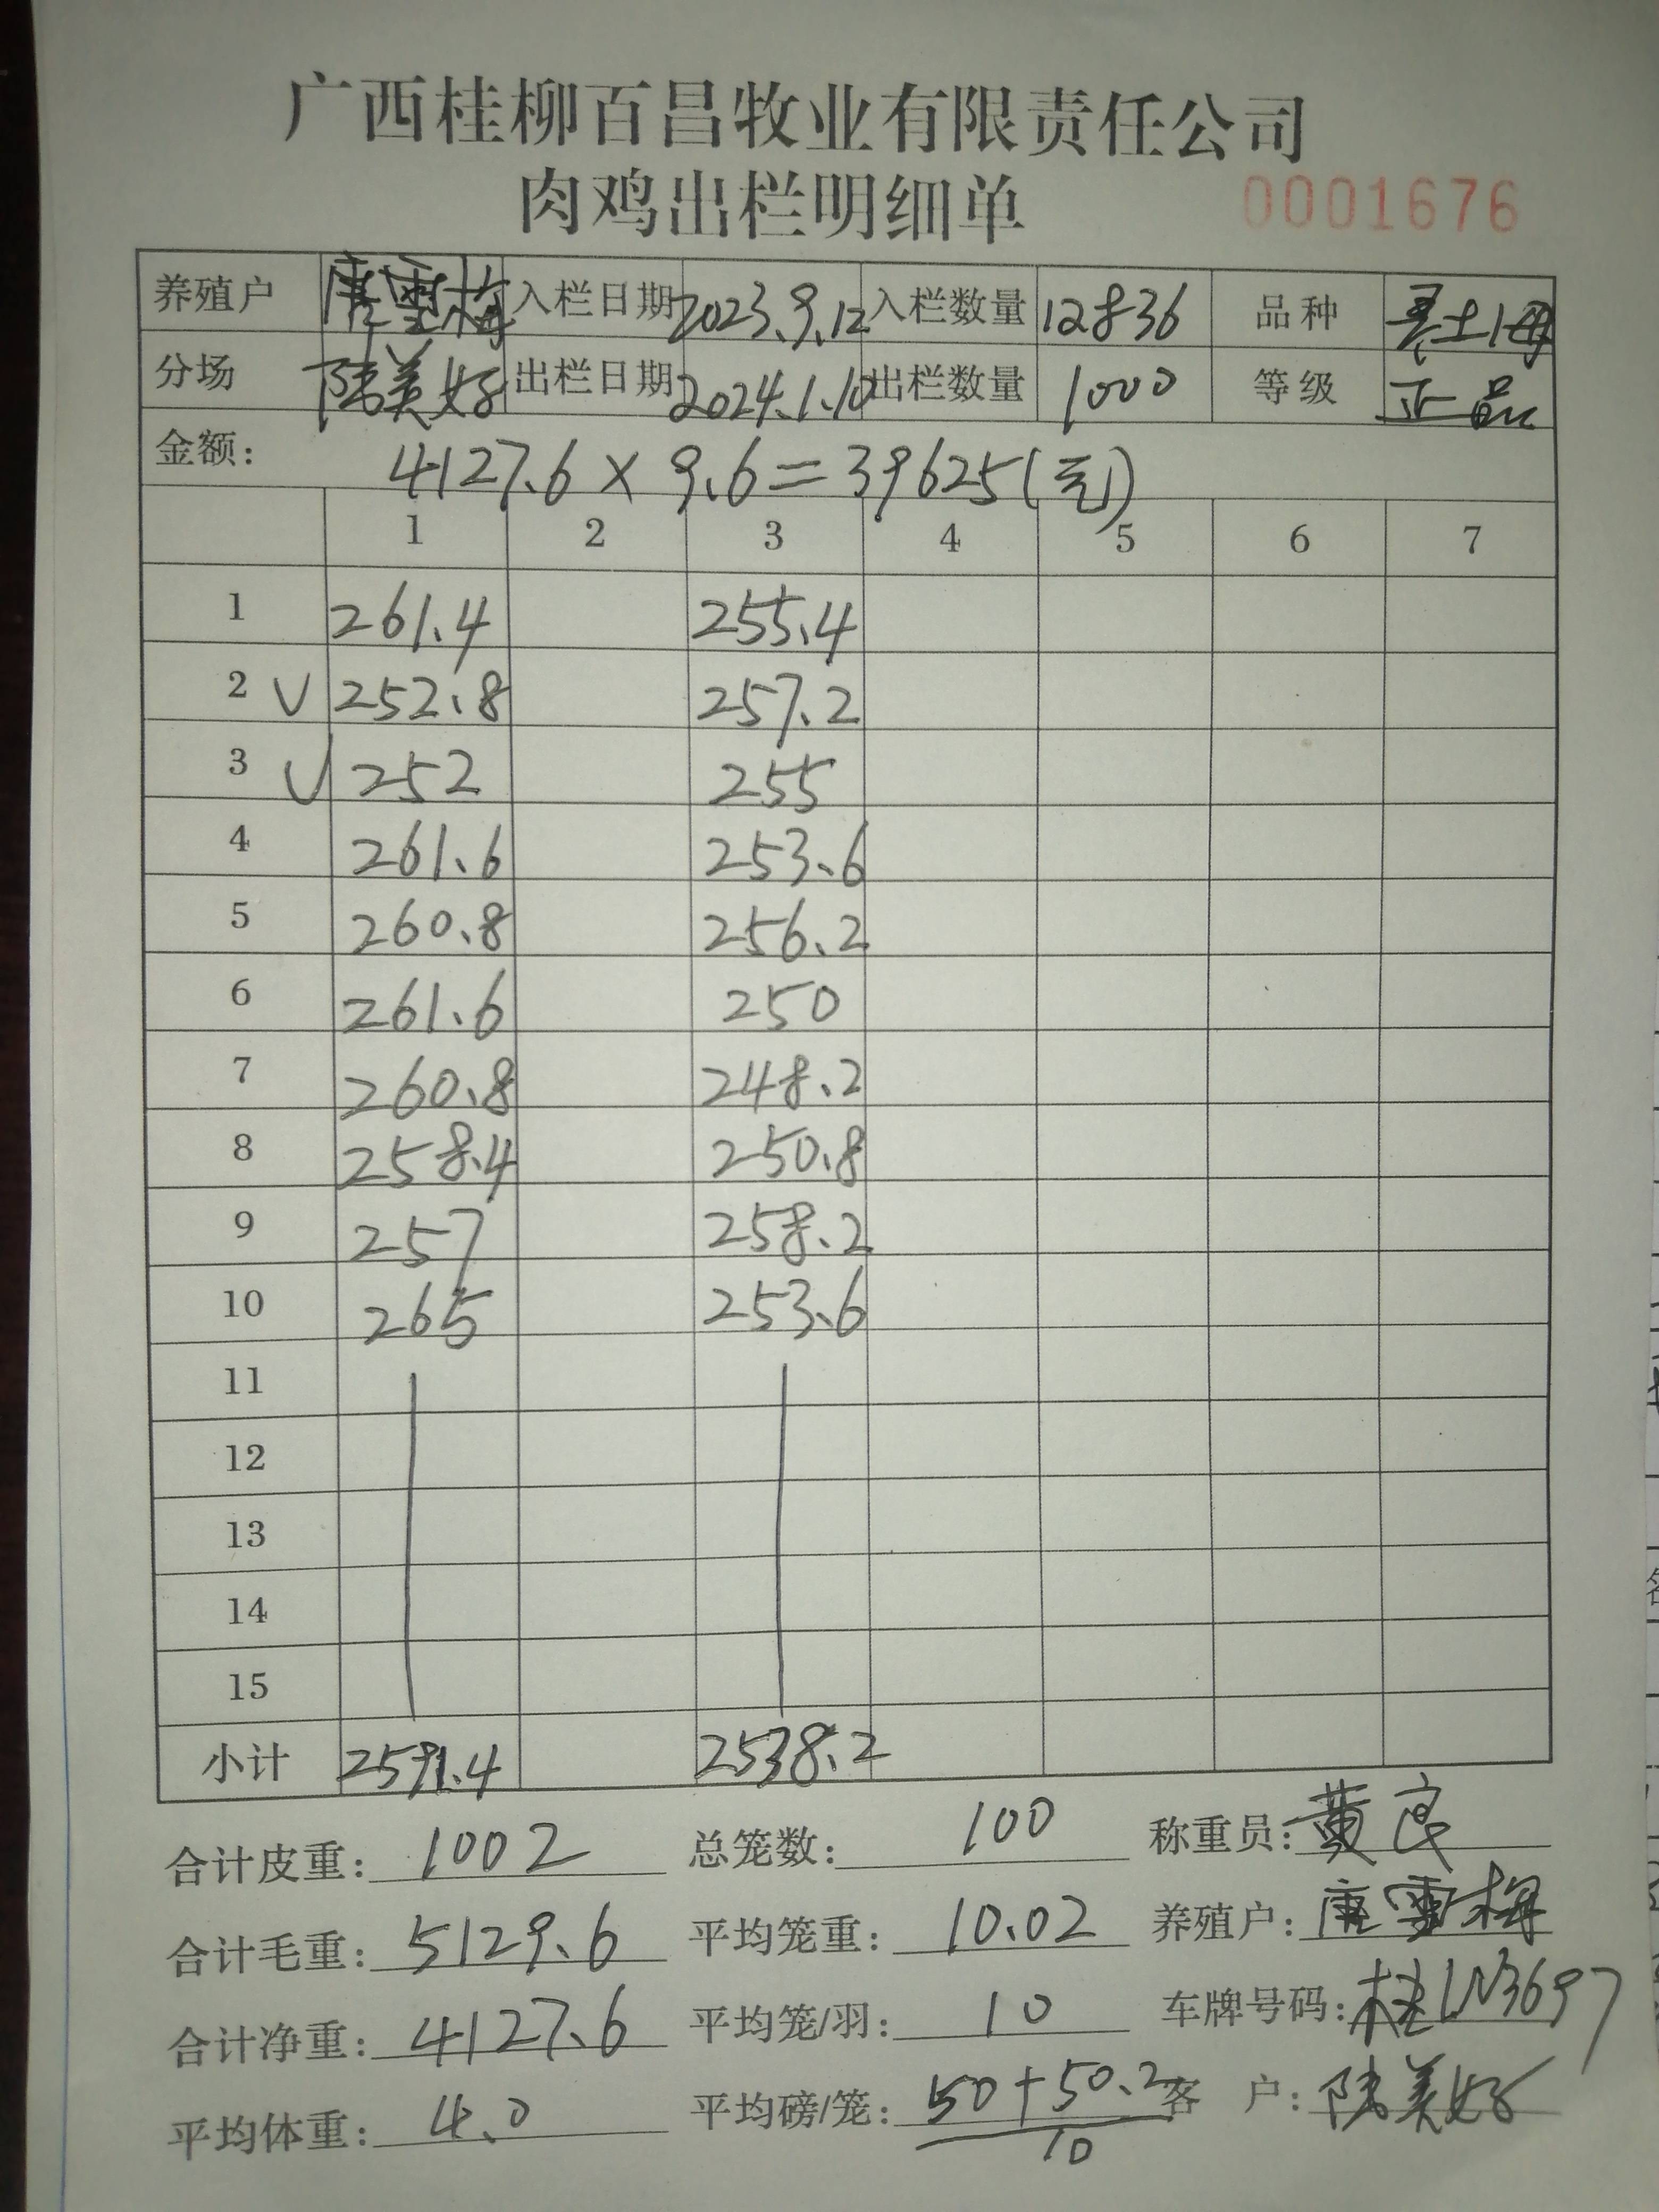 广西桂柳百昌牧业有限责任公司
肉鸡出栏明细单 0001676
养殖户 唐雪梅 入栏日期 2023.9.12 入栏数量 12836 品种 土
分场 陆美好 出栏日期 2024.1.10 出栏数量 1000 等级 正品
金额: 4127.6 × 9.6 = 39625(元)
1 2 3 4 5 6 7
1 261.4 255.4
2 V 252.8 257.2
3 V 252 255
4 261.6 253.6
5 260.8 256.2
6 261.6 250
7 260.8 248.2
8 258.4 250.8
9 257 258.2
10 265 253.6
11
12
13
14
15
小计 2591.4 2538.2
合计皮重: 1002 总笼数: 100 称重员: 黄良
合计毛重: 5129.6 平均笼重: 10.02 养殖户: 唐雪梅
合计净重: 4127.6 平均笼/羽: 10 车牌号码: 桂LN3697
平均体重: 4.0 平均磅/笼: 50+50.2 客 户: 陆美好
10